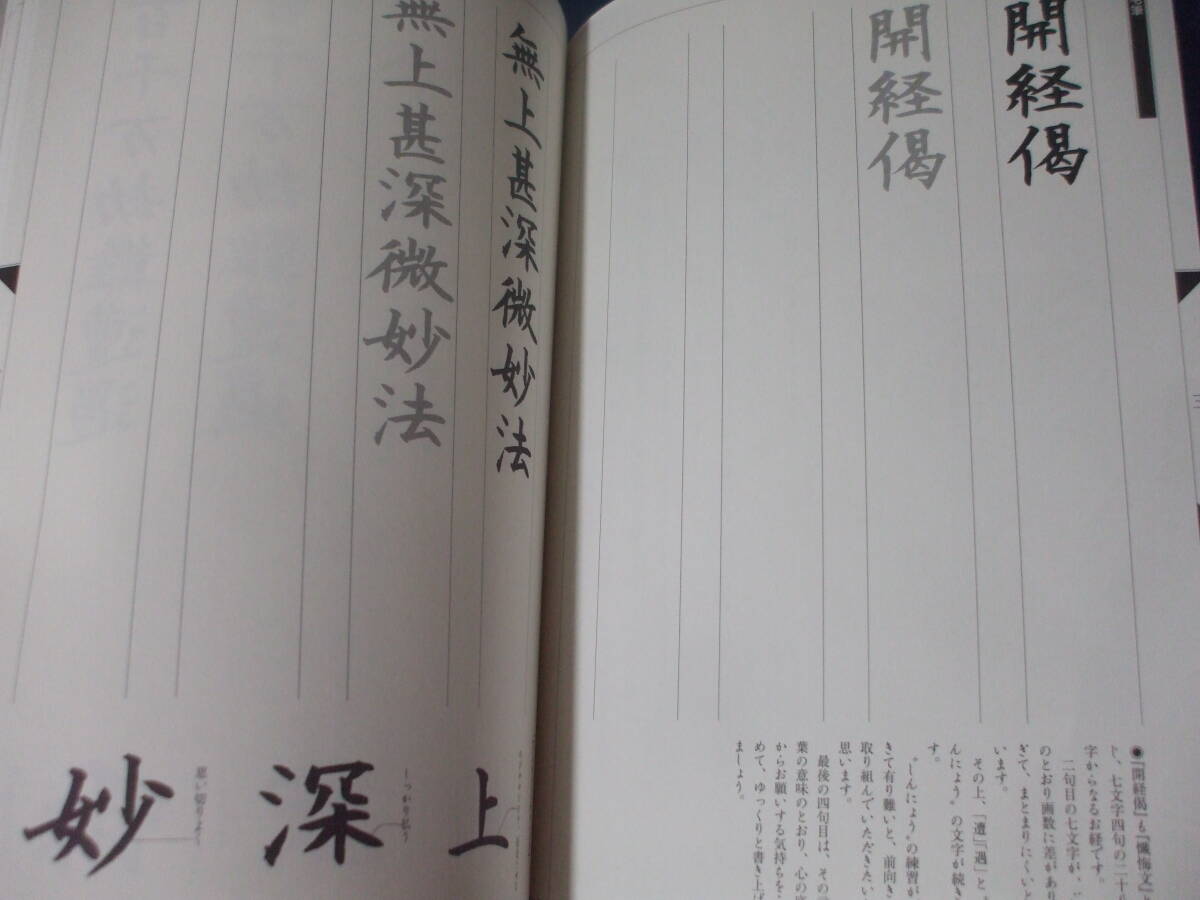 開経偈
開経偈
●『開経偈』も『懺悔文』
じ、七文字四句の二十八
字からなるお経です。
二句目の七文字が、
のとおり画数に差があり
ぎて、まとまりにくい
います。
その上、「遭」「遇」と、
んにょう〟の文字が続き
す。
〝しんにょう〟の練習が
きて有り難いと、前向き
取り組んでいただきたい
思います。
最後の四句目は、その
葉の意味のとおり、心の底
からお願いする気持ちを
めて、ゆっくりと書き上げ
ましょう。
無上甚深微妙法
無上甚深微妙法
上
深
しっかり払う
妙
思い切りよく